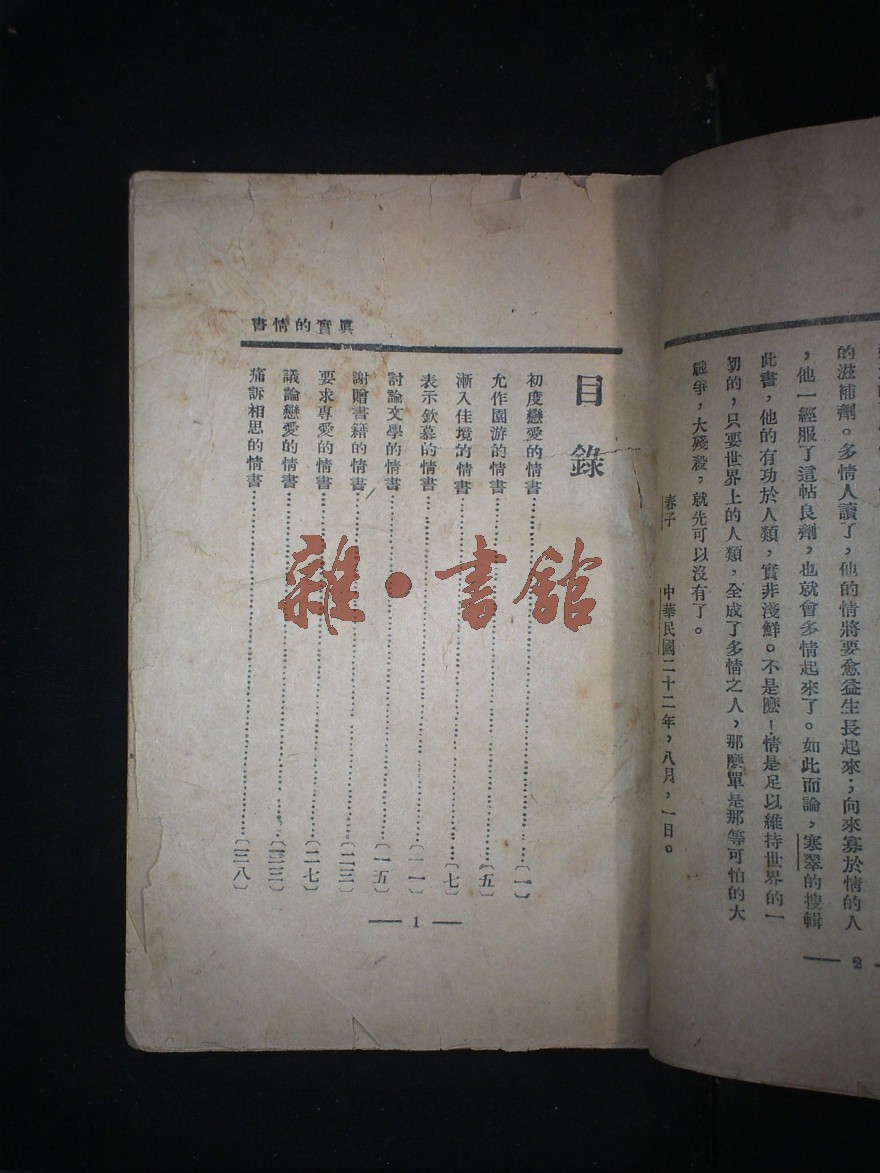 的滋補劑。多情人讀了，他的情將要愈益生長起來；向來寡於情的人
，他一經服了這帖良劑，也就會多情起來了。如此而論，寒翠的搜輯
此書，他的有功於人類，實非淺鮮。不是麽！情是足以維持世界的一
切的，只要世界上的人類，全成了多情之人，那麽單是那等可怕的大
戰爭，大殘殺，就先可以沒有了。
春子　中華民國二十二年，八月，一日。
2
書情的實眞
目錄
初度戀愛的情書…………〔一〕
允作園游的情書…………〔五〕
漸入佳境的情書…………〔七〕
表示欽慕的情書…………〔一一〕
討論文學的情書…………〔一五〕
謝贈書籍的情書…………〔二三〕
要求專愛的情書…………〔二七〕
議論戀愛的情書…………〔三三〕
痛訴相思的情書…………〔三八〕
1
雜·書館